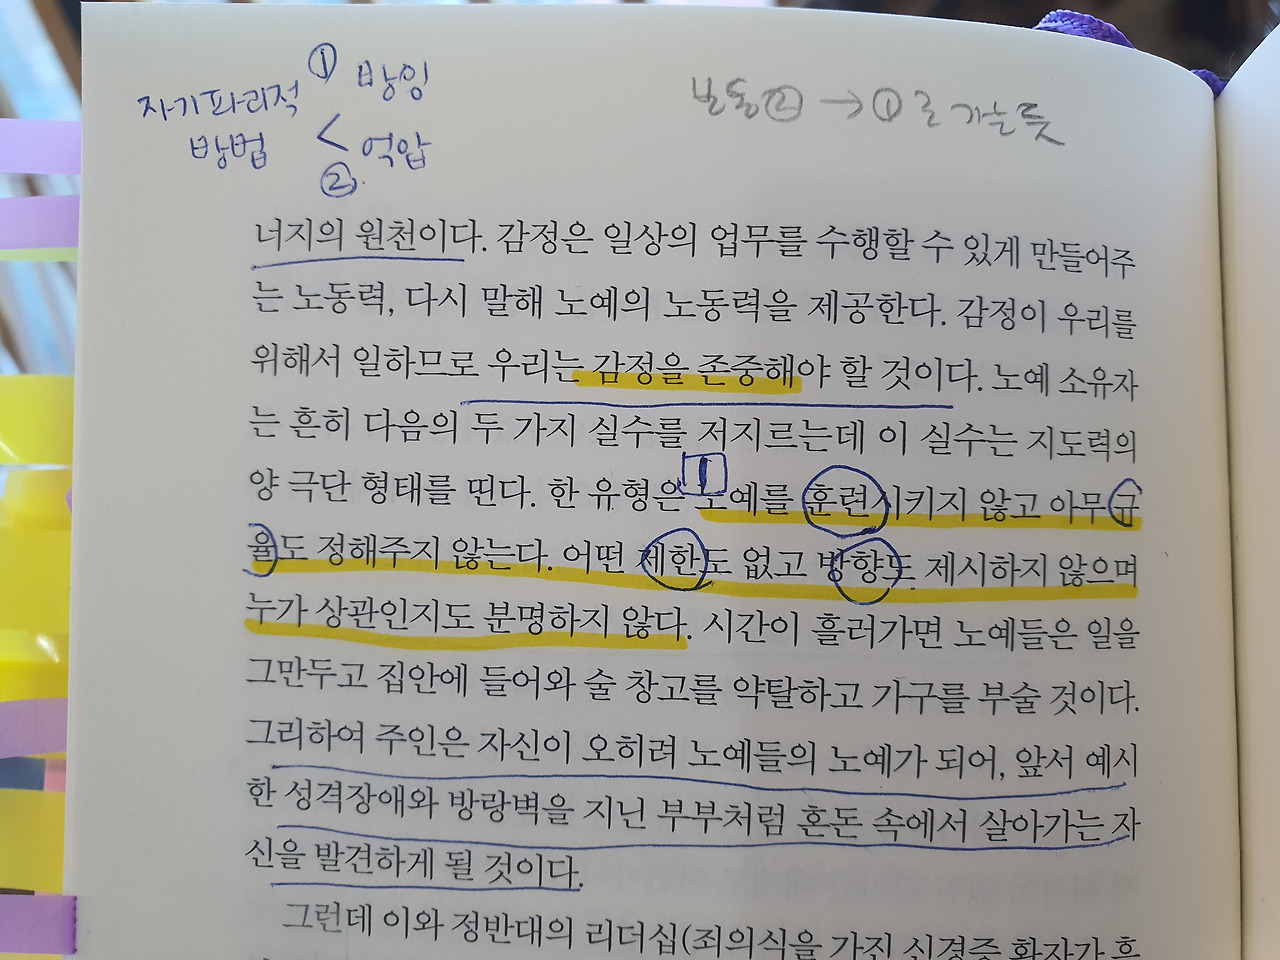 ① 방임
자기파괴적
방법 <
억압
②
보통 ② → ①로 가는 듯
너지의 원천이다. 감정은 일상의 업무를 수행할 수 있게 만들어주
는 노동력, 다시 말해 노예의 노동력을 제공한다. 감정이 우리를
위해서 일하므로 우리는 감정을 존중해야 할 것이다. 노예 소유자
는 흔히 다음의 두 가지 실수를 저지르는데 이 실수는 지도력의
양 극단 형태를 띤다. 한 유형은 노예를 훈련시키지 않고 아무 규
율도 정해주지 않는다. 어떤 제한도 없고 방향도 제시하지 않으며
누가 상관인지도 분명하지 않다. 시간이 흘러가면 노예들은 일을
그만두고 집안에 들어와 술 창고를 약탈하고 가구를 부술 것이다.
그리하여 주인은 자신이 오히려 노예들의 노예가 되어, 앞서 예시
한 성격장애와 방랑벽을 지닌 부부처럼 혼돈 속에서 살아가는 자
신을 발견하게 될 것이다.
그런데 이와 정반대의 리더십(죄의식을 가진 신경증 환자가 흔